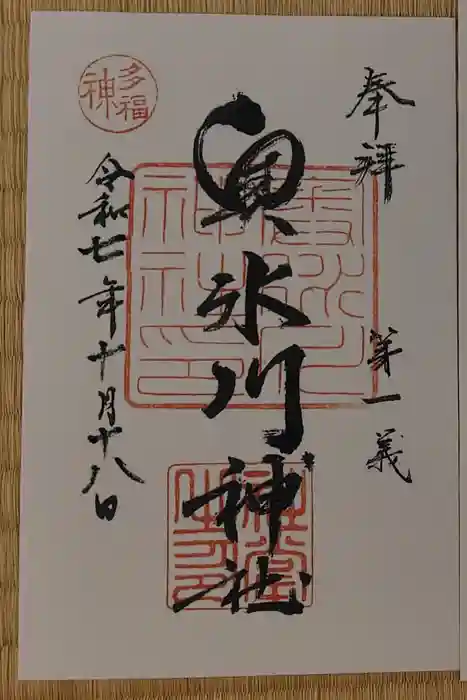 奉拝
第一義
奥氷川神社
多福
神
令和七年十月十八日